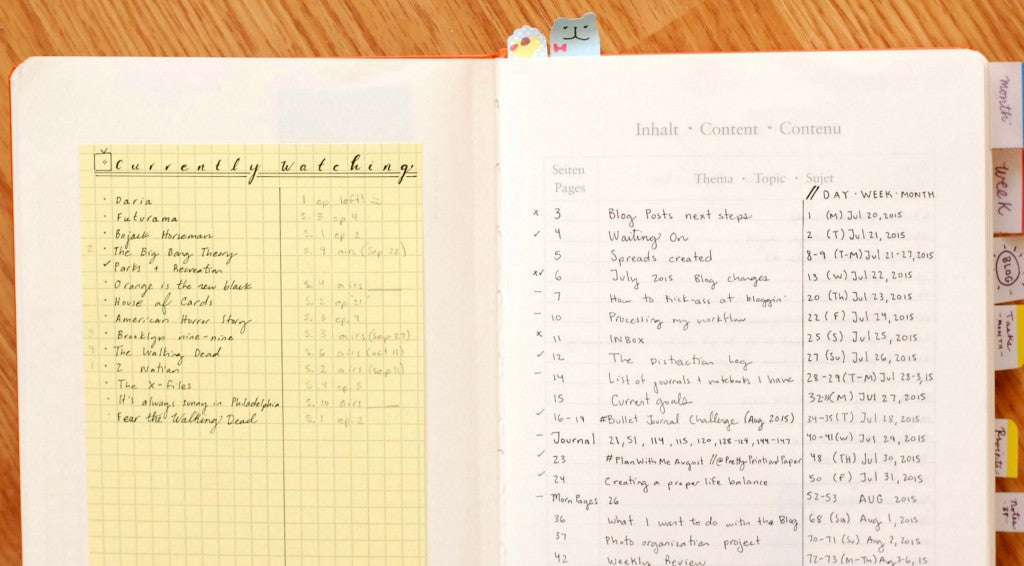 Currently Watching
· Daria 1 ep left!
· Futurama S. 3 ep 4
· Bojack Horseman S. 1 ep 2
2 · The Big Bang Theory S. 9 airs (Sep 22)
✓ Parks + Recreation
· Orange is the new black S. 4 airs ____
· House of Cards S. 2 ep 21
· American Horror Story S. 3 ep. 4
3 · Brooklyn nine-nine S. 3 airs (sep 27)
4 · The Walking Dead S. 6 airs (oct 11)
1 · Z Nation S. 2 airs (sep 11)
· The X-files S. 4 ep. 3
· It's always sunny in Philadelphia S. 10 airs ____
· Fear the Walking Dead S. 1 ep. 2
Inhalt · Content · Contenu
Seiten
Pages
Thema · Topic · Sujet
// DAY · WEEK · MONTH
x 3 Blog Posts next steps 1 (M) Jul 20, 2015
✓ 4 Waiting On 2 (T) Jul 21, 2015
5 Spreads created 8-9 (T-M) Jul 21-27, 2015
x✓ 6 July 2015 Blog changes 13 (W) Jul 22, 2015
- 7 How to kick-ass at bloggin' 20 (Th) Jul 23, 2015
- 10 Processing my workflow 22 (F) Jul 24, 2015
x 11 INBox 25 (S) Jul 25, 2015
✓ 12 The Distraction Log 27 (Su) Jul 26, 2015
- 14 List of journals + notebooks I have 28-29 (T-M) Jul 28-3, 15
15 Current goals 32 (M) JUl 27, 2015
✓ 16-19 #Bullet Journal Challenge (Aug 2015) 34-35 (T) Jul 28, 2015
- Journal 21, 51, 114, 115, 120, 128-129, 144-147 40-41 (W) Jul 29, 2015
✓ 23 #PlanWithMe August // @PrettyPrintsandPaper 48 (TH) Jul 30, 2015
✓ 24 Creating a proper life balance 50 (F) Jul 31, 2015
- Morn Pages 26 52-53 AUG 2015
36 What I want to do with the Blog 68 (Sa) Aug 1, 2015
37 Photo organization project 70-71 (Su) Aug 2, 2015
42 Weekly Review 72-73 (M-Th) Aug 3-6, 15
month
week
BLOG
Tasks
-MONTH-
Notes